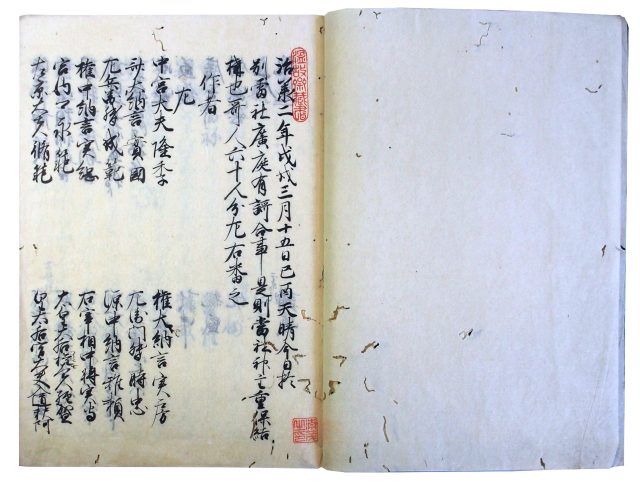 治承二年戊戌三月十五日己丙天晴今日於
別雷社廣庭有謌合事是則當社神主重保結
構也哥人六十人分左右番之
作者
左
中宮大夫隆季
權大納言実房
大納言實國
左衛門督時忠
左兵衛督成範
源中納言雅頼
權中納言実綱
右宰相中将実守
宮内卿永範
右京大夫脩範